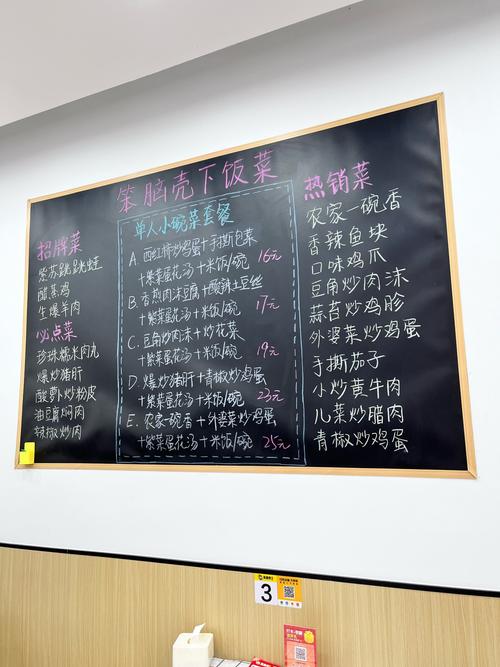 笨脑壳下饭菜
招牌菜
紫苏跳跳蛙
醋蒸鸡
生爆羊肉
必点菜
珍珠糯米肉丸
爆炒猪肝
酸萝卜炒粉皮
油豆腐焖肉
辣椒炒肉
单人小碗菜套餐
A. 西红柿炒鸡蛋+手撕包菜
+紫菜蛋花汤+米饭/碗 16元
B. 香热肉沫豆腐+酸辣土豆丝
+紫菜蛋花汤+米饭/碗 17元
C. 豆角炒肉沫+炒花菜
+紫菜蛋花汤+米饭/碗 19元
D. 爆炒猪肝+青椒炒鸡蛋
+紫菜蛋花汤+米饭/碗 23元
E. 农家一碗香+外婆菜炒鸡蛋
+紫菜蛋花汤+米饭/碗 25元
热销菜
农家一碗香
香辣鱼块
口味鸡爪
豆角炒肉沫
蒜苔炒鸡胗
外婆菜炒鸡蛋
手撕茄子
小炒黄牛肉
儿菜炒腊肉
青椒炒鸡蛋
3